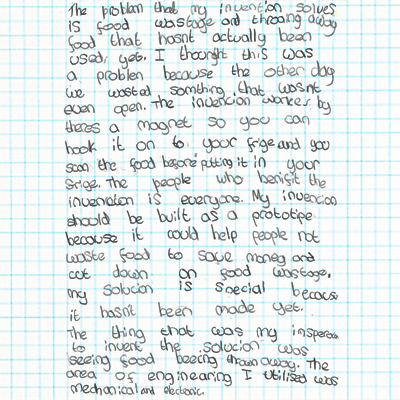 The problem that my invention solves
is food wastage and throing away
food that hasnt actually been
used, yet. I thought this was
a problem because the other day
we wasted somthing that wasnt
even open. The invencion workes by
theres a magnet so you can
hook it on to your frige and you
scan the food before putting it in your
frige. The people who benifit the
invencion is everyone. My invencion
should be built as a prototipe
because it could help people not
waste food to save money and
cut down on food wastage.
my solucion is special becaus
it hasnt been made yet.
The thing that was my insperas
to invent the solucion was
seeing food beeing thrown away. The
area of engineering I utilised was
mechanical and electronic.